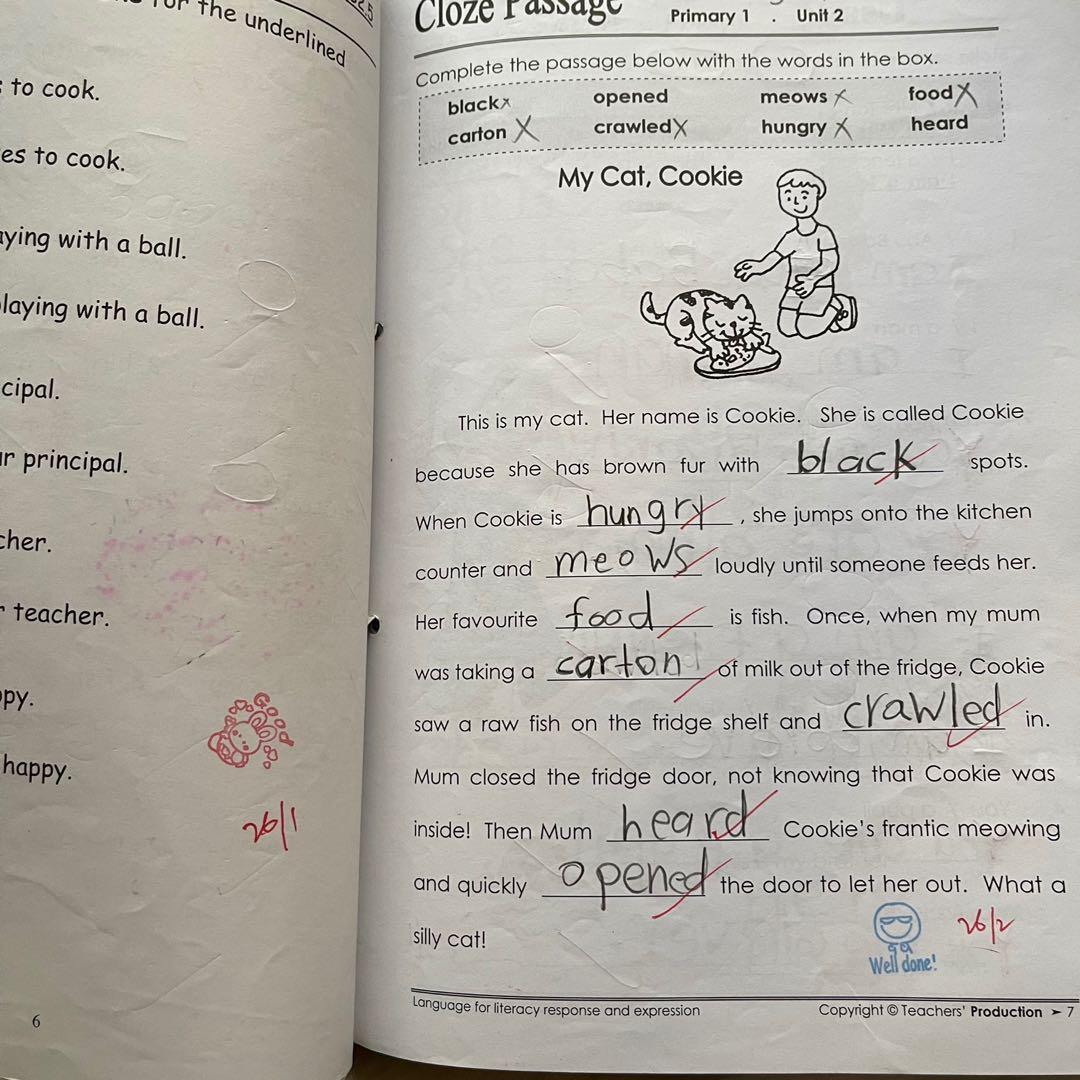 for the underlined
to cook.
es to cook.
aying with a ball.
laying with a ball.
cipal.
r principal.
cher.
r teacher.
py.
happy.
Good
26/1
6
Cloze Passage
Primary 1 . Unit 2
Complete the passage below with the words in the box.
black opened meows food
carton crawled hungry heard
My Cat, Cookie
This is my cat. Her name is Cookie. She is called Cookie
because she has brown fur with black spots.
When Cookie is hungry, she jumps onto the kitchen
counter and meows loudly until someone feeds her.
Her favourite food is fish. Once, when my mum
was taking a carton of milk out of the fridge, Cookie
saw a raw fish on the fridge shelf and crawled in.
Mum closed the fridge door, not knowing that Cookie was
inside! Then Mum heard Cookie's frantic meowing
and quickly opened the door to let her out. What a
silly cat!
26/2
Well done!
Language for literacy response and expression
Copyright © Teachers' Production ➢ 7